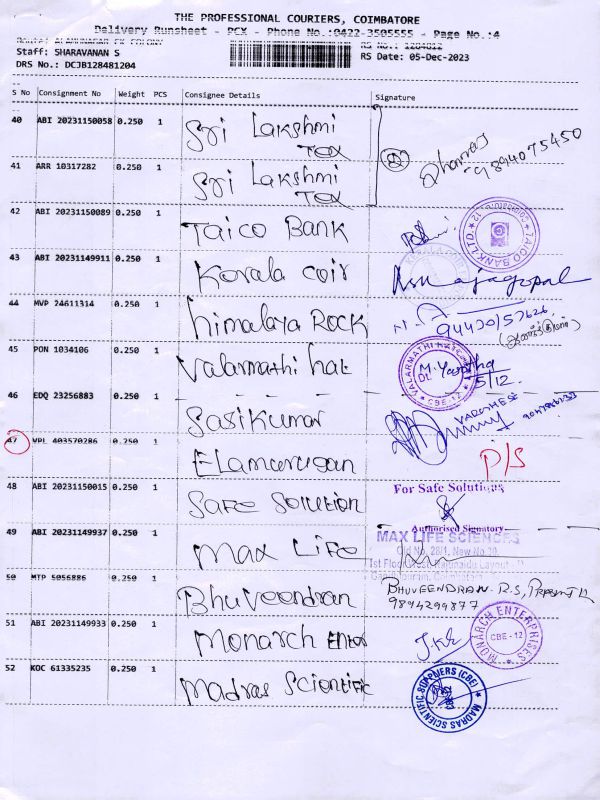 THE PROFESSIONAL COURIERS, COIMBATORE
Delivery Runsheet - PCX - Phone No.:0422-3505555 - Page No.:4
Staff: SHARAVANAN S
RS No.: 1284812
DRS No.: DCJB128481204
RS Date: 05-Dec-2023
S No Consignment No Weight PCS Consignee Details Signature
40 ABI 20231150058 0.250 1 Sri Lakshmi Tex
9894075450
41 ARR 10317282 0.250 1 Sri Lakshmi Tex
42 ABI 20231150089 0.250 1 Taico Bank
TAICO BANK LTD.
43 ABI 20231149911 0.250 1 Kerala coir
44 MVP 24611314 0.250 1 himalaya Rock
45 PON 1034106 0.250 1 Valarmathi hat
VALARMATHI
CBE-12
5/12.
46 EDQ 23256883 0.250 1 Sasikumar
VARGHESE
47 VPL 403570286 0.250 1 Elamurugan
D/S
48 ABI 20231150015 0.250 1 Safe Solution
For Safe Solutions
Authorised Signatory
49 ABI 20231149937 0.250 1 Max Life
MAX LIFE SCIENCES
Old No. 28/1, New No.
1st Floor
50 MTP 5056886 0.250 1 Bhuveendran
BHUVEENDRAN. R.S,
9894299877
51 ABI 20231149933 0.250 1 Monarch Enter
MONARCH ENTERPRISES
CBE - 12
52 KOC 61335235 0.250 1 Madras Scientific
MADRAS SCIENTIFIC SUPPLIERS (CBE)